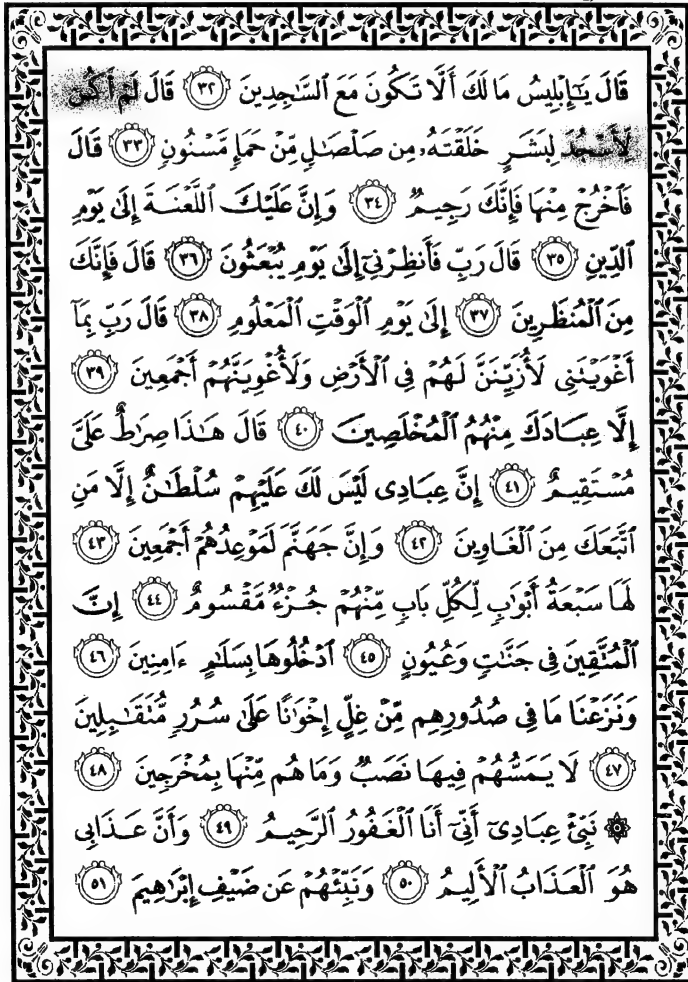 قَالَ يَـٰٓإِبْلِيسُ مَا لَكَ أَلَّا تَكُونَ مَعَ ٱلسَّـٰجِدِينَ ٣٢ قَالَ لَمْ أَكُن
لِّأَسْجُدَ لِبَشَرٍ خَلَقْتَهُۥ مِن صَلْصَـٰلٍ مِّنْ حَمَإٍ مَّسْنُونٍ ٣٣ قَالَ
فَٱخْرُجْ مِنْهَا فَإِنَّكَ رَجِيمٌ ٣٤ وَإِنَّ عَلَيْكَ ٱللَّعْنَةَ إِلَىٰ يَوْمِ
ٱلدِّينِ ٣٥ قَالَ رَبِّ فَأَنظِرْنِىٓ إِلَىٰ يَوْمِ يُبْعَثُونَ ٣٦ قَالَ فَإِنَّكَ
مِنَ ٱلْمُنظَرِينَ ٣٧ إِلَىٰ يَوْمِ ٱلْوَقْتِ ٱلْمَعْلُومِ ٣٨ قَالَ رَبِّ بِمَآ
أَغْوَيْتَنِى لَأُزَيِّنَنَّ لَهُمْ فِى ٱلْأَرْضِ وَلَأُغْوِيَنَّهُمْ أَجْمَعِينَ ٣٩
إِلَّا عِبَادَكَ مِنْهُمُ ٱلْمُخْلَصِينَ ٤٠ قَالَ هَـٰذَا صِرَٰطٌ عَلَىَّ
مُسْتَقِيمٌ ٤١ إِنَّ عِبَادِى لَيْسَ لَكَ عَلَيْهِمْ سُلْطَـٰنٌ إِلَّا مَنِ
ٱتَّبَعَكَ مِنَ ٱلْغَاوِينَ ٤٢ وَإِنَّ جَهَنَّمَ لَمَوْعِدُهُمْ أَجْمَعِينَ ٤٣
لَهَا سَبْعَةُ أَبْوَٰبٍ لِّكُلِّ بَابٍ مِّنْهُمْ جُزْءٌ مَّقْسُومٌ ٤٤ إِنَّ
ٱلْمُتَّقِينَ فِى جَنَّـٰتٍ وَعُيُونٍ ٤٥ ٱدْخُلُوهَا بِسَلَـٰمٍ ءَامِنِينَ ٤٦
وَنَزَعْنَا مَا فِى صُدُورِهِم مِّنْ غِلٍّ إِخْوَٰنًا عَلَىٰ سُرُرٍ مُّتَقَـٰبِلِينَ
٤٧ لَا يَمَسُّهُمْ فِيهَا نَصَبٌ وَمَا هُم مِّنْهَا بِمُخْرَجِينَ ٤٨
۞ نَبِّئْ عِبَادِىٓ أَنِّىٓ أَنَا ٱلْغَفُورُ ٱلرَّحِيمُ ٤٩ وَأَنَّ عَذَابِى
هُوَ ٱلْعَذَابُ ٱلْأَلِيمُ ٥٠ وَنَبِّئْهُمْ عَن ضَيْفِ إِبْرَٰهِيمَ ٥١